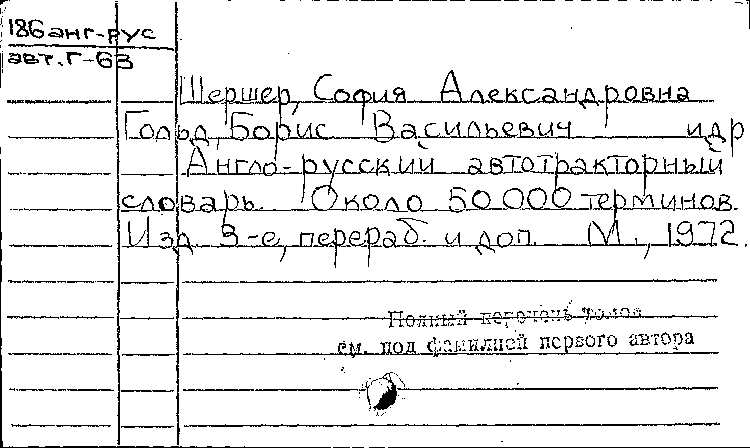 186 анг-рус
авт. Г-63
Шершер, София Александровна
Гольд, Борис Васильевич и др
Англо-русский автотракторный
словарь. Около 50 000 терминов.
Изд 3-е, перераб. и доп. М., 1972.
Полный перечень томов
см. под фамилией первого автора